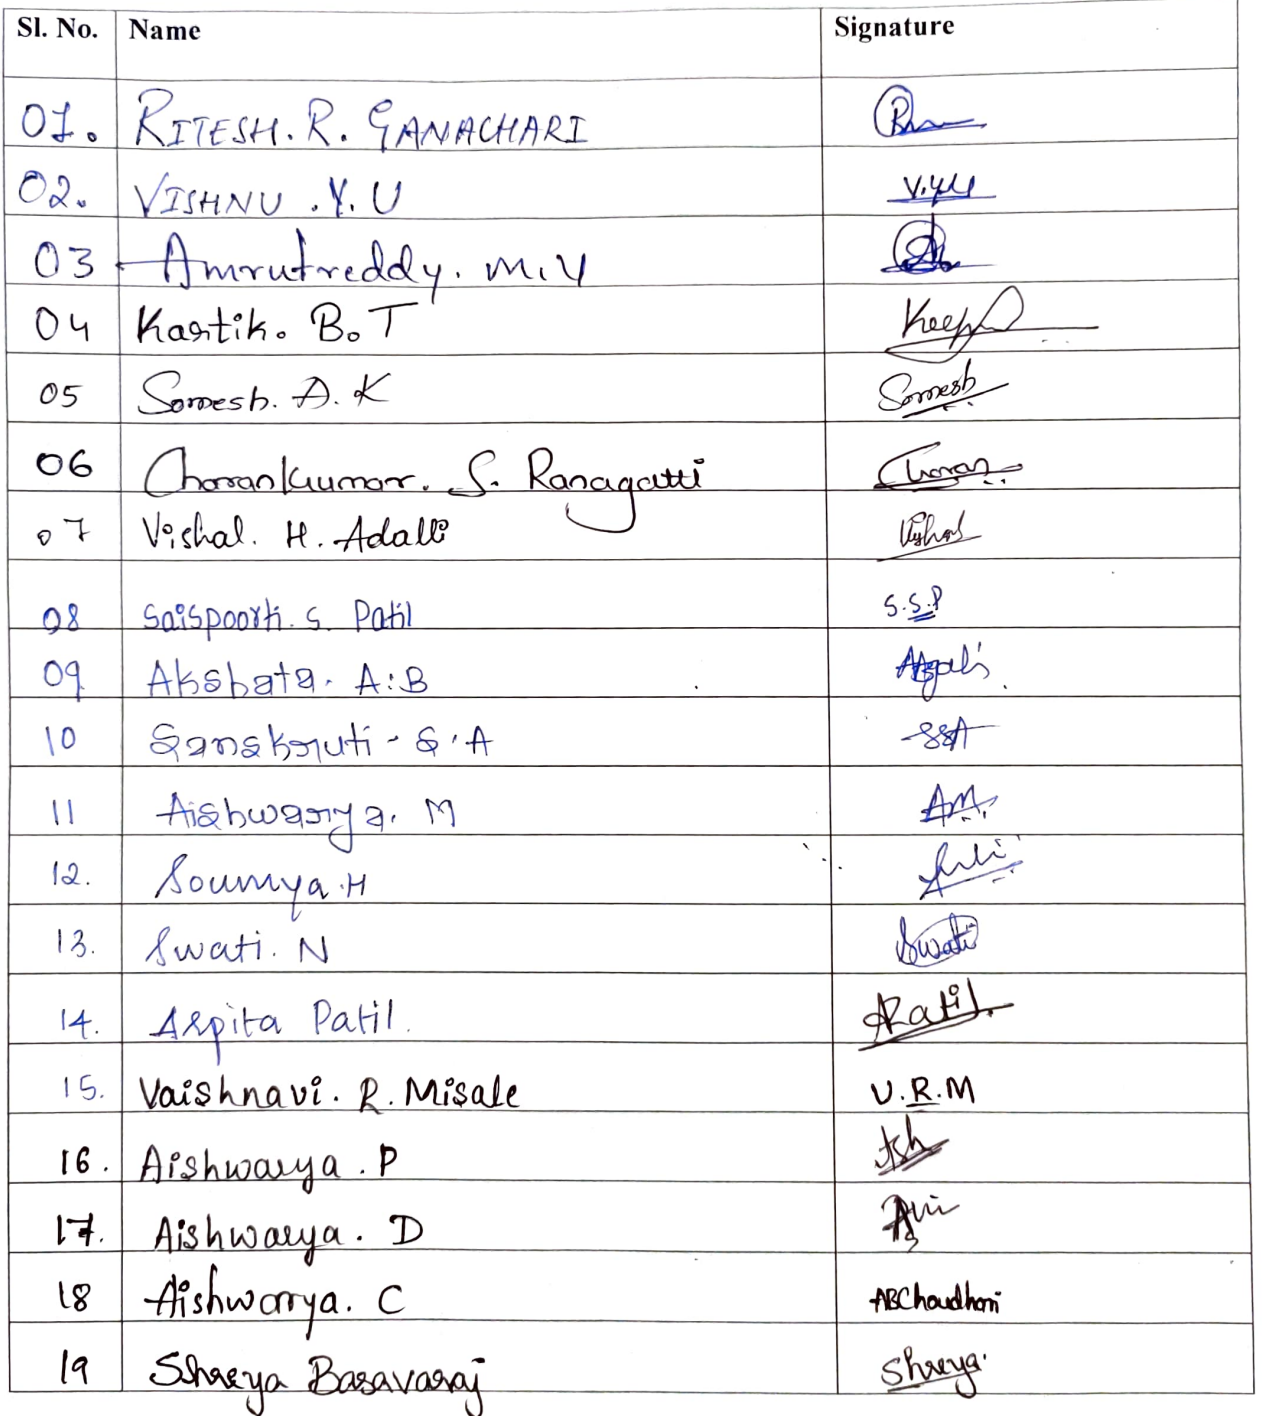 Sl. No. Name Signature
01. RITESH. R. GANACHARI
02. VISHNU .Y. U V.Y.U
03 Amrutreddy. M.V
04 Kartik. B. T
05 Somesh. D. K Somesh
06 Charankumar. S. Ranagatti Charan
07 Vishal. H. Adalli Vishal
08 Saispoorti. S. Patil S.S.P
09 Akshata. A.B
10 Sanskruti - S.A SSA
11 Aishwarya. M AM
12. Soumya .H
13. Swati. N Swati
14. Arpita Patil. APatil.
15. Vaishnavi. R. Misale V.R.M
16. Aishwarya . P Ash
17. Aishwarya . D
18 Aishwarya. C ABChoudhari
19 Shreya Basavaraj Shreya.